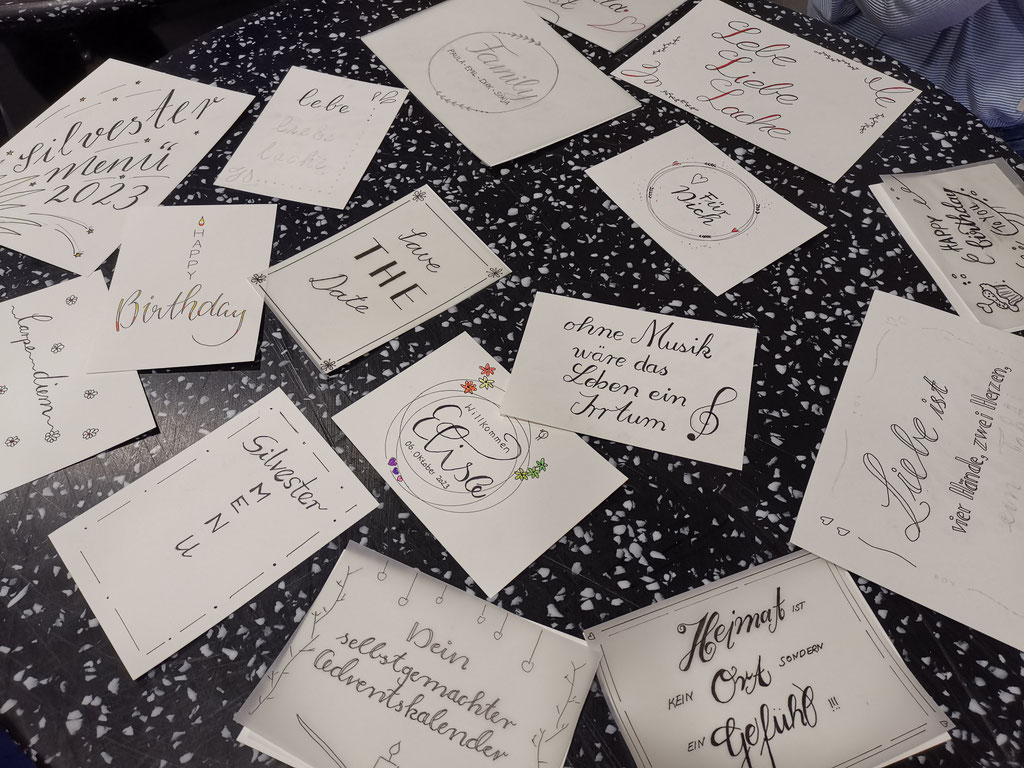 Family
Lebe
Liebe
Lache
Silvester
menü
2023
lebe
liebe
lache
Für
Dich
HAPPY
Birthday
for you!
HAPPY
Birthday
Save
THE
Date
ohne Musik
wäre das
Leben ein
Irrtum
Carpe diem
Willkommen
Elisa
06. Oktober 2021
Liebe ist
vier Hände, zwei Herzen,
Silvester
MENU
Dein
selbstgemachter
Adventskalender
Heimat IST
KEIN Ort SONDERN
EIN Gefühl !!!